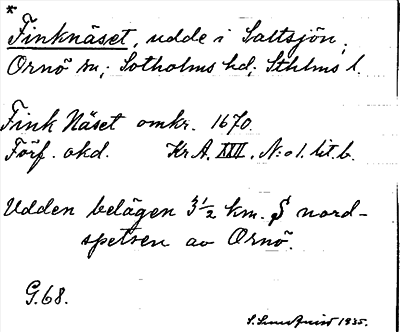 *
Finknäset, udde i Saltsjön,
Ornö sn; Sotholms hd; Sthlms l.
Fink Näset omkr. 1670.
Förf. okd. Kr A. XXII. N:o 1. lit. b.
Udden belägen 3 1/2 km. S nord-
spetsen av Ornö.
G. 68.
1935.